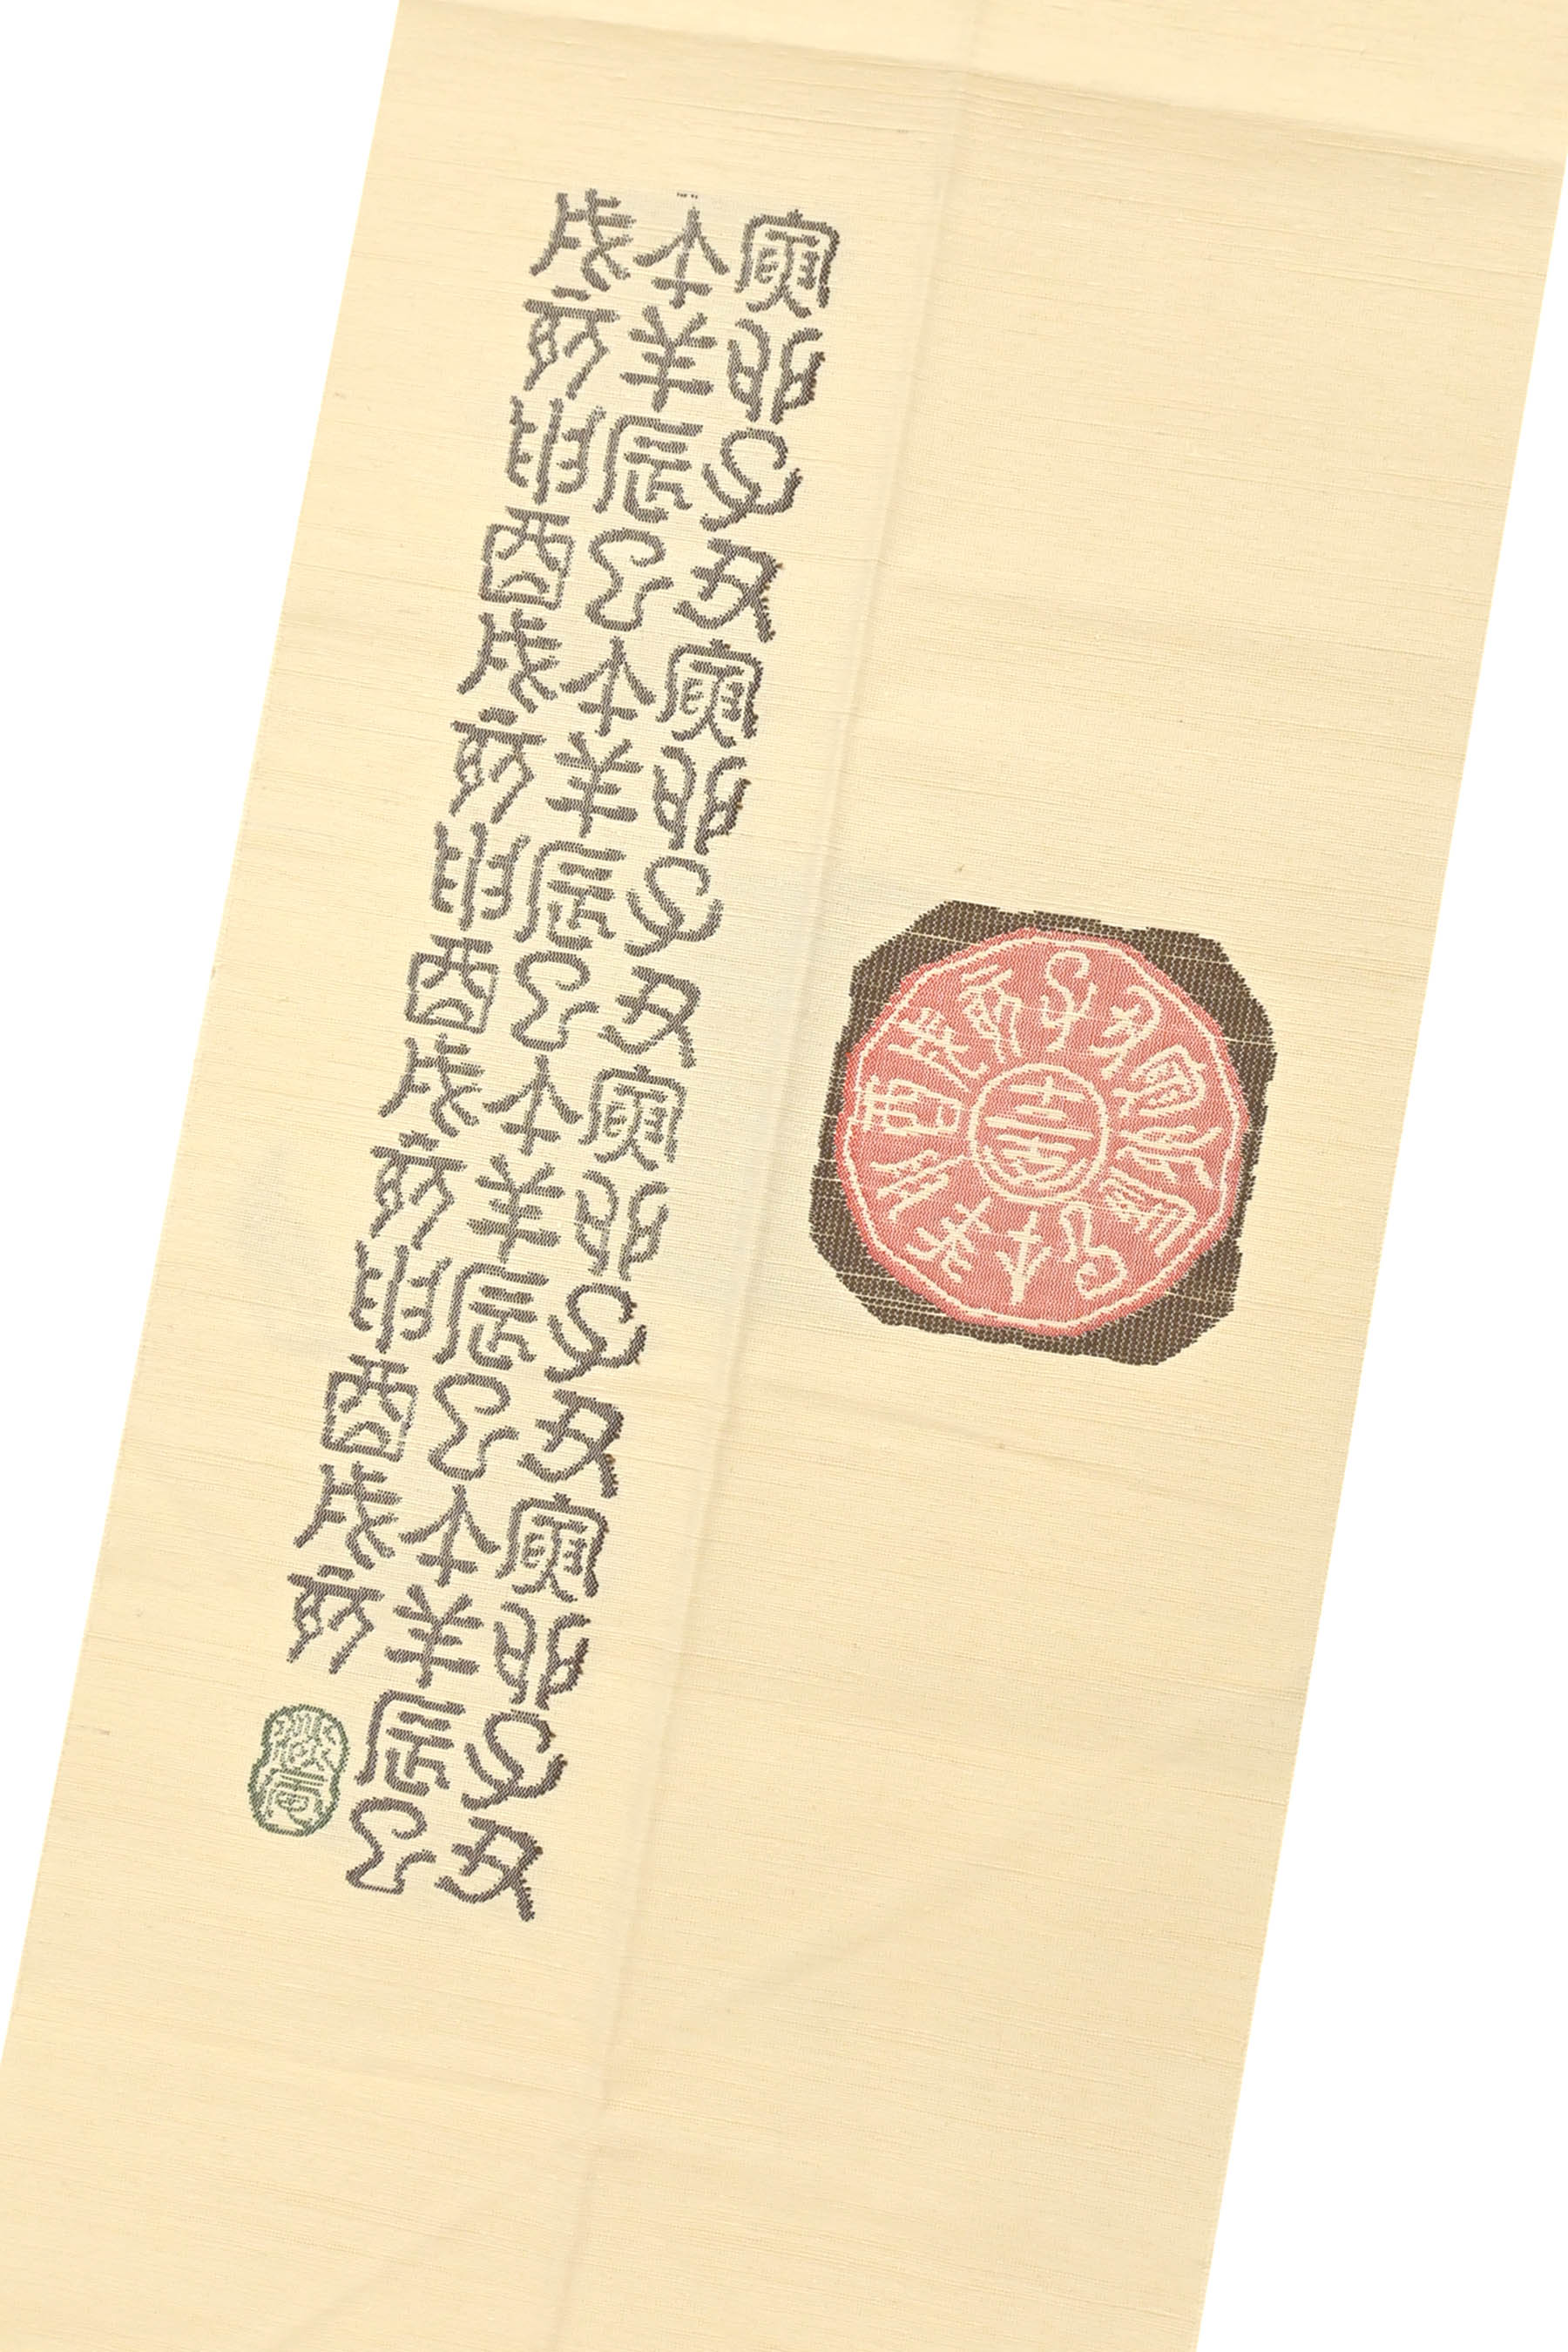 寅卯子丑寅卯子丑寅卯子丑寅卯子丑
午羊辰巳午羊辰巳午羊辰巳午羊辰巳
戌亥申酉戌亥申酉戌亥申酉戌亥
子丑寅卯辰巳午未申酉戌亥